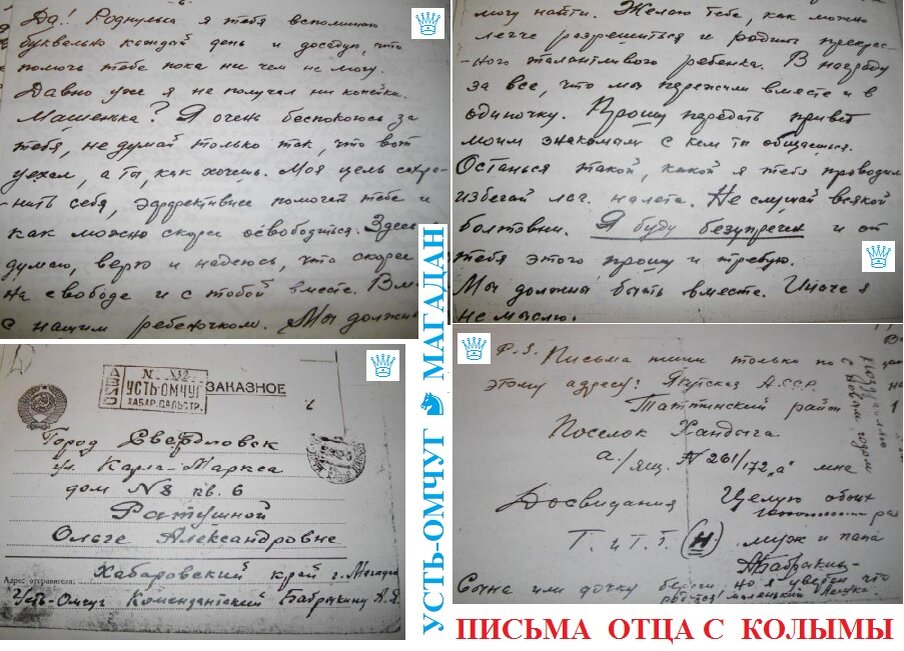 Да! Роднулька я тебя вспоминаю
буквально каждый день и досадую, что
помочь тебе пока ни чем не могу.
Давно уже я не получал ни копейки.
Машенька? Я очень беспокоюсь за
тебя, не думай только так, что вот
уехал, а ты, как хочешь. Моя цель сохра-
-нить себя, эффективнее помогать тебе и
как можно скорее освободиться. Здесь
думаю, верю и надеюсь, что скорее
на свободе и с тобой вместе. Вм
с нашим ребёночком. Мы должны
могу найти. Желаю тебе, как можно
легче разрешиться и родить прекрас-
-ного талантливого ребенка. В награду
за все, что мы пережили вместе и в
одиночку. Прошу передать привет
моим знакомым с кем ты общаешься.
Останься такой, какой я тебя проводил
избегай лаг. налета. Не слушай всякой
болтовни. Я буду безупречен и от
тебя этого прошу и требую.
Мы должны быть вместе. Иначе я
не мыслю.
АВИО
N - 832
УСТЬ-ОМЧУГ
ХАБАР. ДАЛЬСТР.
ЗАКАЗНОЕ
Город Свердловск
ул. Карла-Маркса
дом N8 кв. 6
Ратушной
Ольге Александровне
Адрес отправителя:
Хабаровский край г. Магадан
Усть-Омчуг Комендантский Бабрыкину А.Я.
P.S. Письма пиши только по
этому адресу: Якутская А.ССР.
Таттинский район
Поселок Хандыга
а/ящ. N 261/172 "а" мне
Поздравляю
с новым годом
Досвидания Целую обоих
Т. и Т. Т. (Н) муж и папа
Бабрыкин
Сына или дочку береги. но я уверен что
родится маленький
УСТЬ-ОМЧУГ МАГАДАН
ПИСЬМА ОТЦА С КОЛЫМЫ